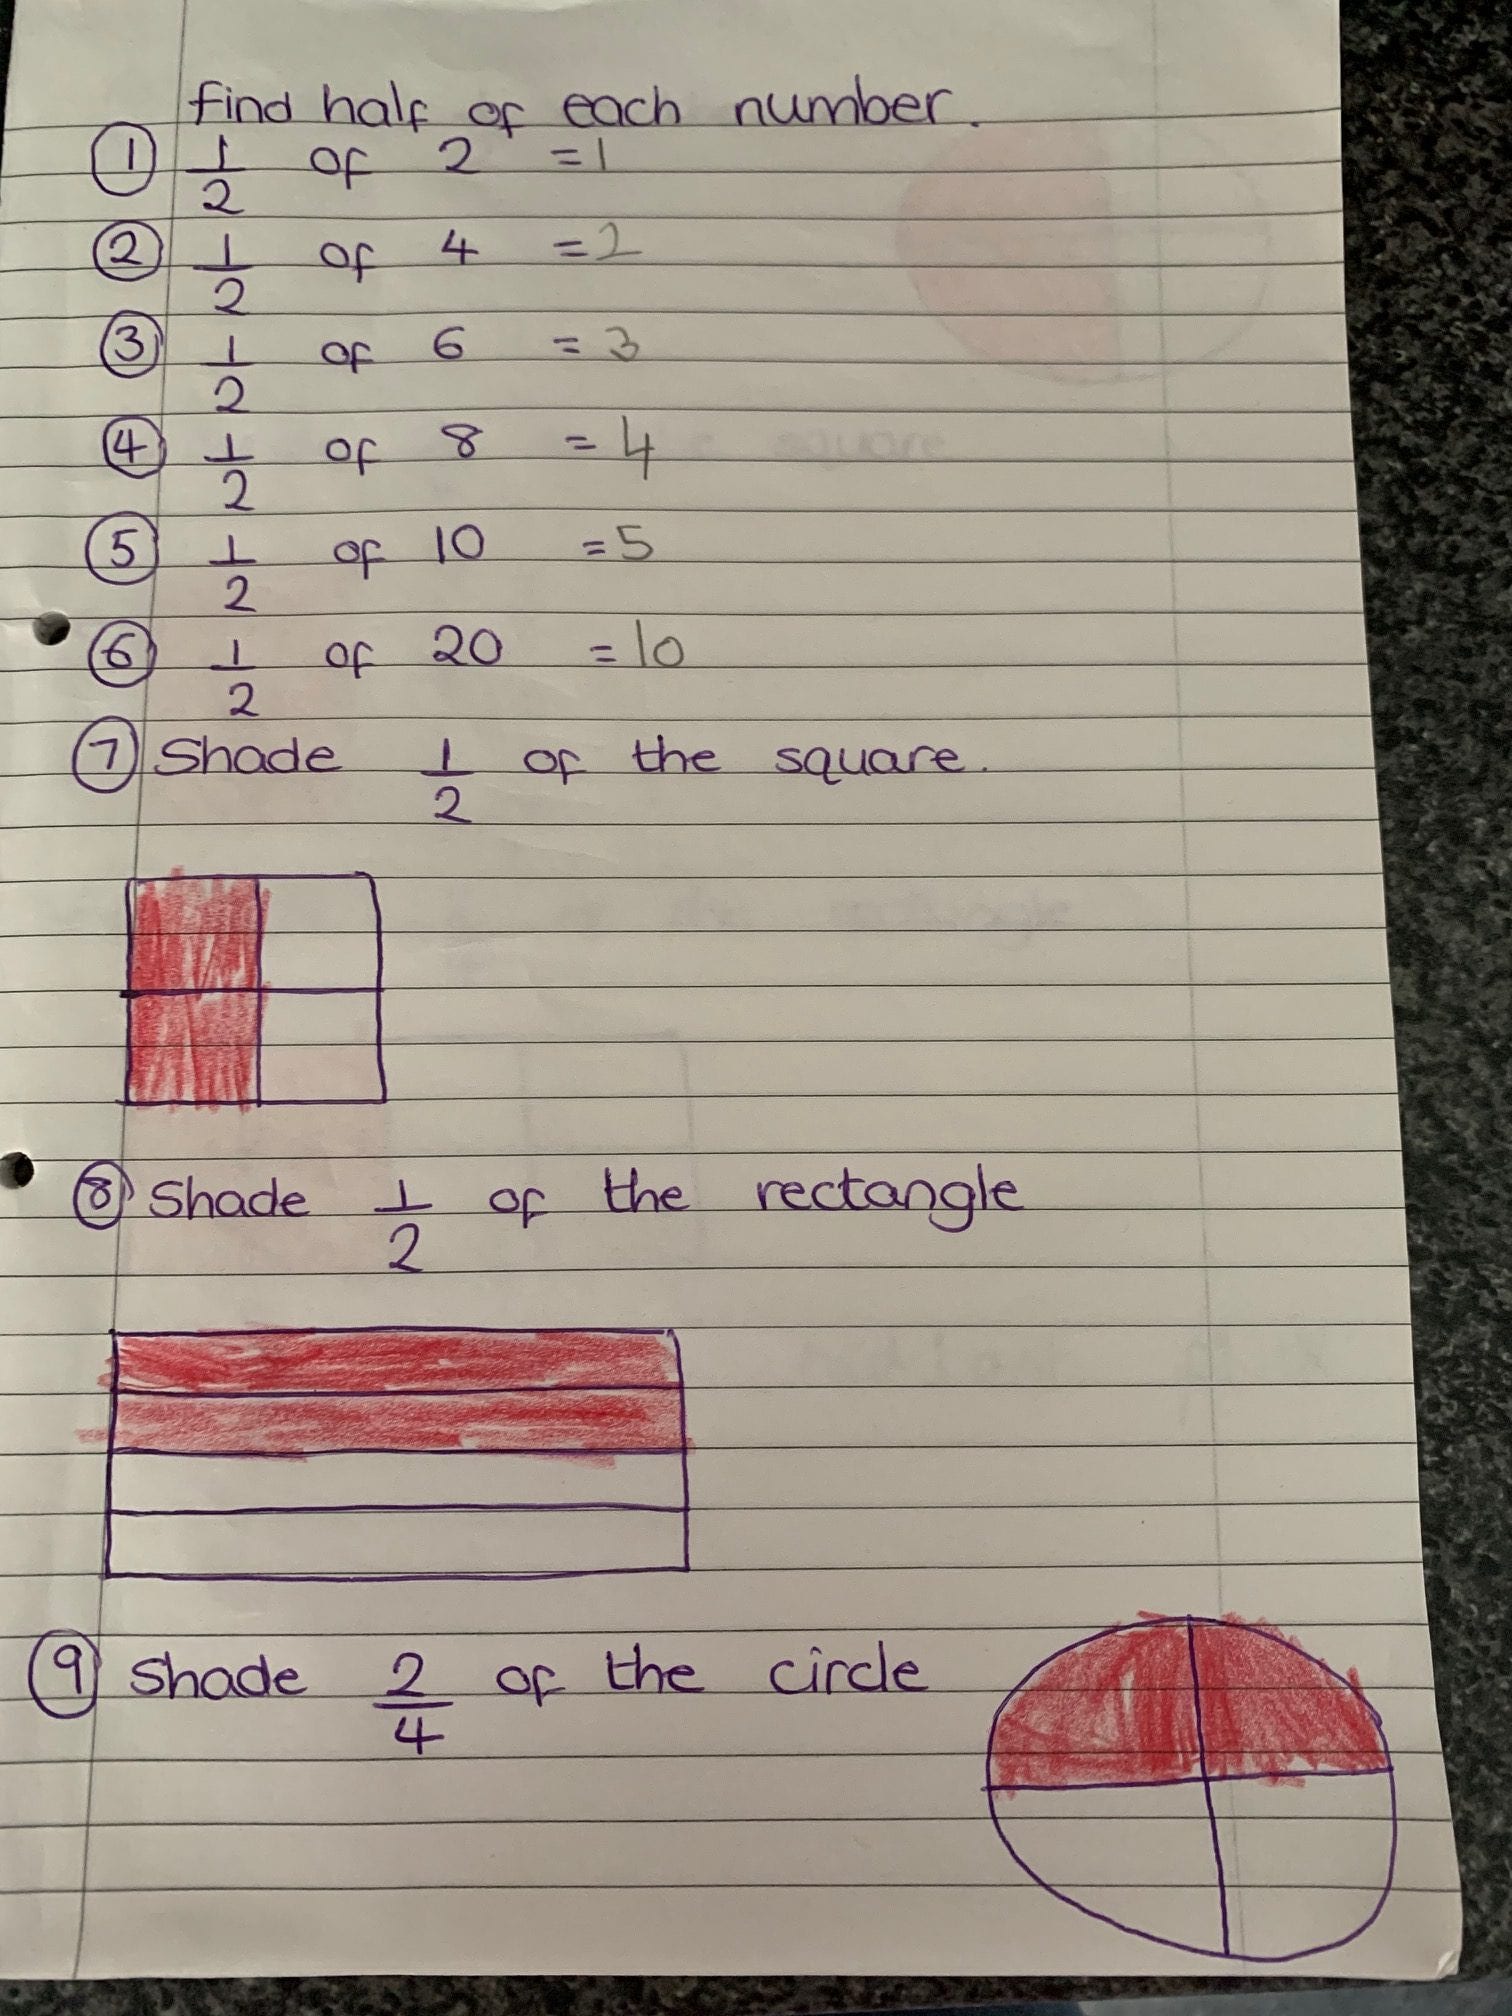 find half of each number.
① 1/2 of 2 = 1
② 1/2 of 4 = 2
③ 1/2 of 6 = 3
④ 1/2 of 8 = 4
⑤ 1/2 of 10 = 5
⑥ 1/2 of 20 = 10
⑦ Shade 1/2 of the square.
⑧ Shade 1/2 of the rectangle
⑨ Shade 2/4 of the circle